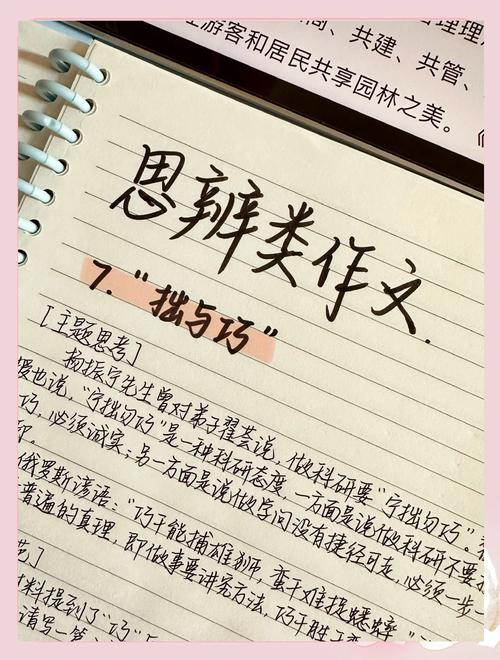 共建、共管、
游客和居民共享园林之美。
思辨类作文.
7.“拙与巧”
[主题思考]
杨振宁先生曾对弟子翟荟说，做科研要“宁拙勿巧”。
也说，“宁拙勿巧”是一种科研态度，一方面是说做科研不要
巧，必须诚实；另一方面是说做学问没有捷径可走，必须一步一
俄罗斯谚语：“巧干能捕雄狮，蛮干难捉蟋蟀”
普遍的真理，即做事要讲究方法，巧干胜于
材料提到了“巧”
请写一篇